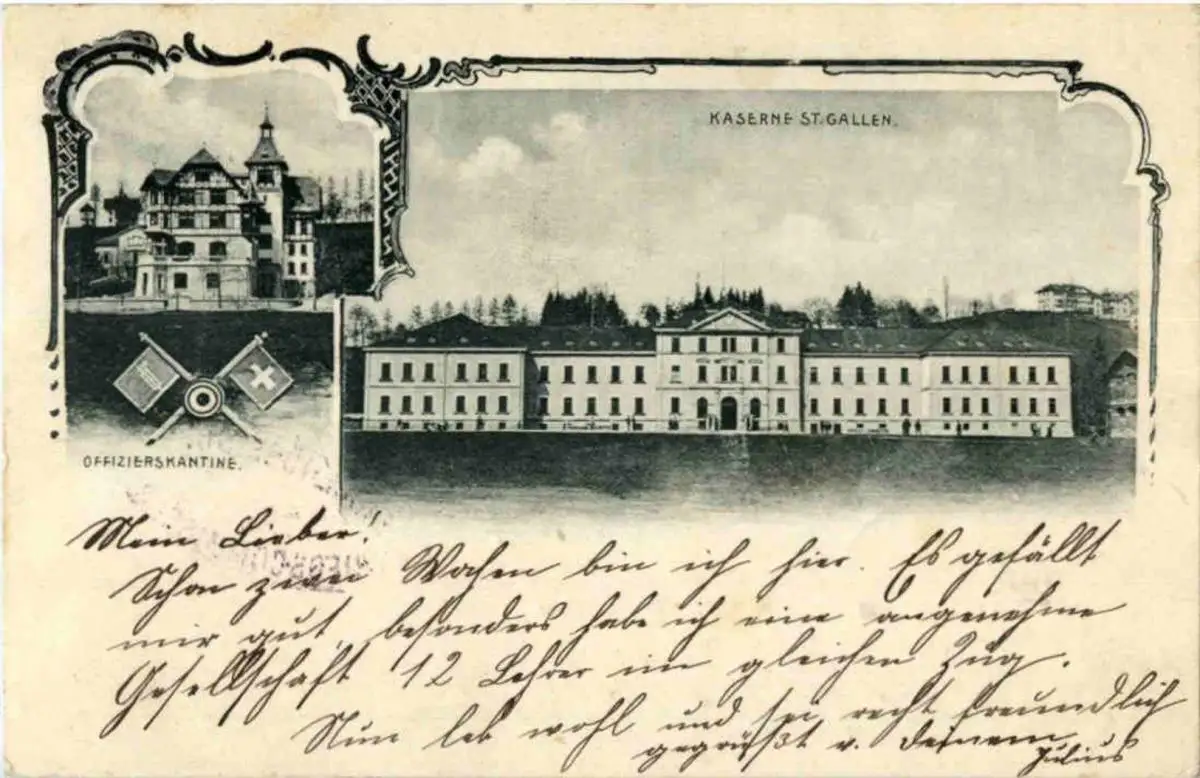 KASERNE ST. GALLEN.
OFFIZIERSKANTINE.
Mein Lieber!
Schon zwei Wochen bin ich hier. Es gefällt
mir gut, besonders habe ich eine angenehme
Gesellschaft 12 Lehrer im gleichen Zug.
Nun leb wohl und sei recht freundlich
gegrüßt v. deinem
Julius